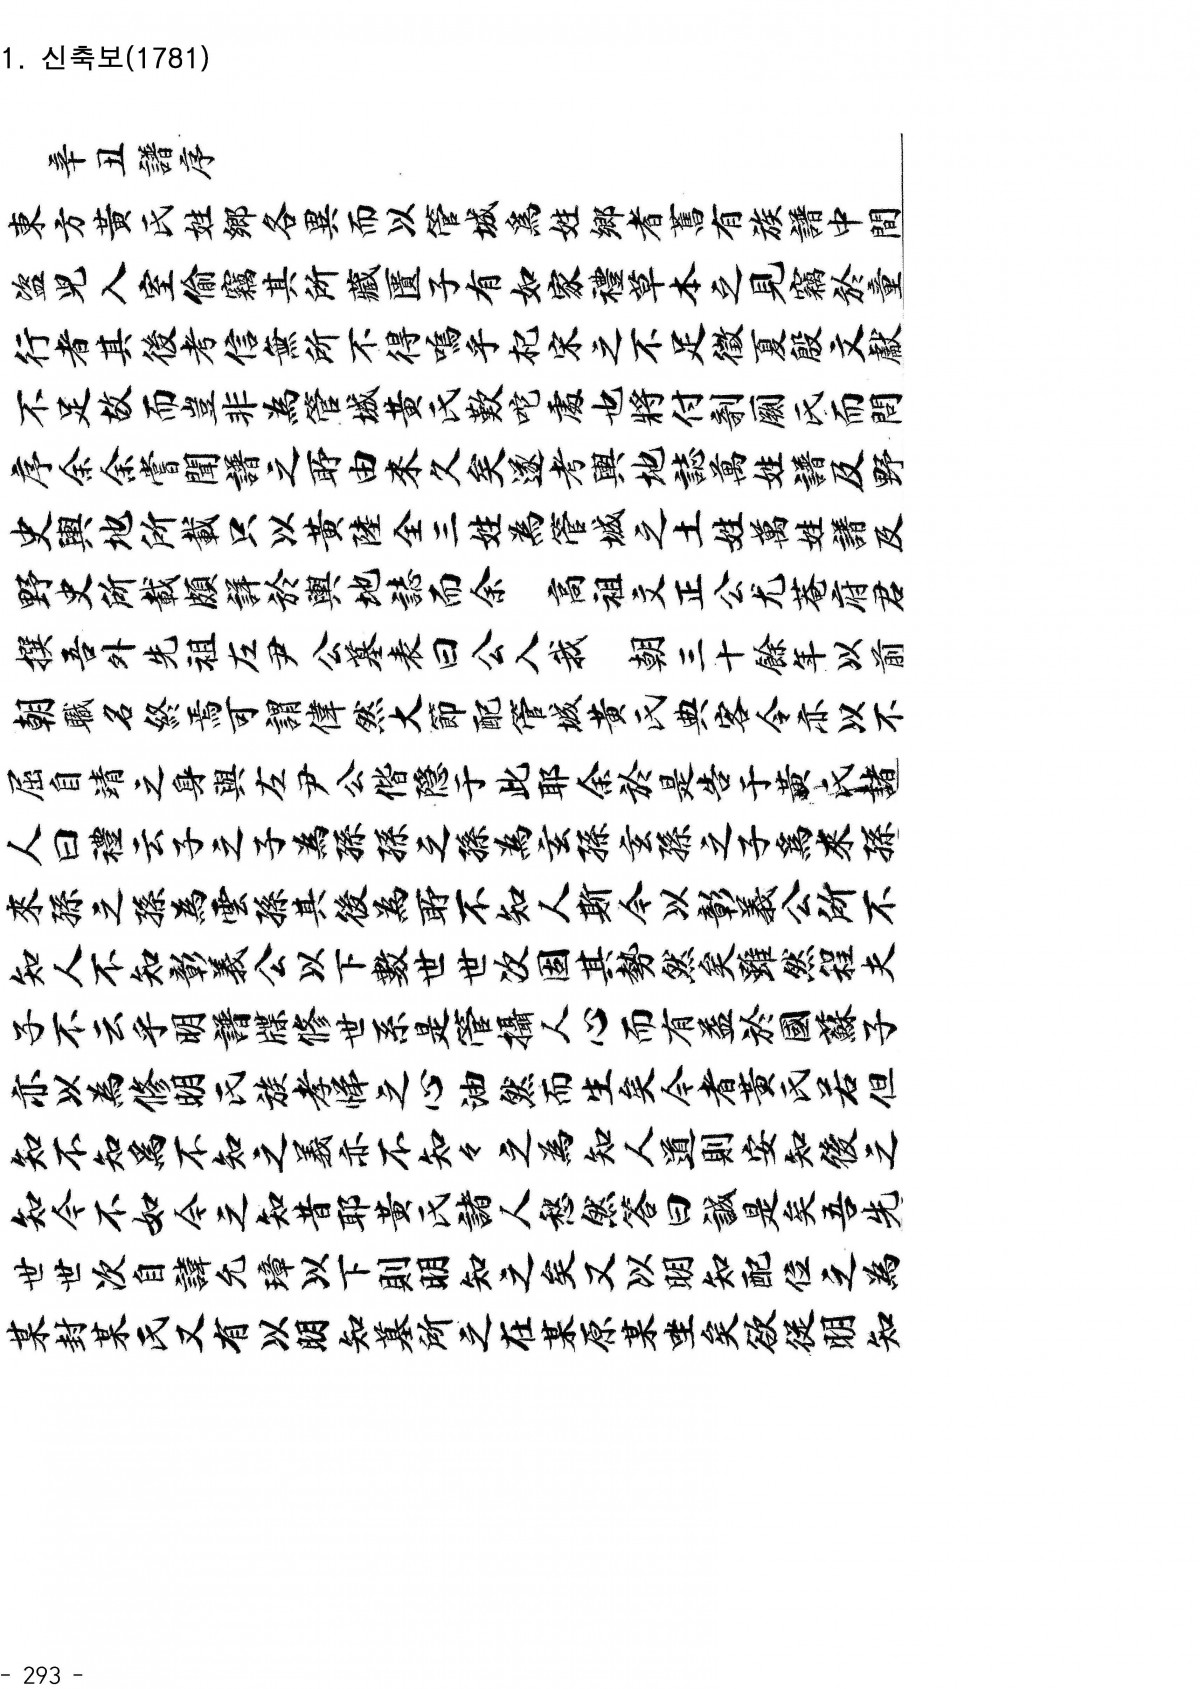 1. 신축보(1781)
辛丑譜序
東方黃氏姓鄕各異而以管城爲姓鄕者舊有族譜中間
盜兒入室偷竊其所藏匱子有如家禮草本之見竊於童
行者其後考信無所不得嗚乎杞宋之不足徵夏殷文獻
不足故而豈非為管城黃氏歎咤處也將付剞厥氏而問
序余余嘗聞譜之所由來久矣遂考輿地誌萬姓譜及野
史輿地所載只以黃陸全三姓為管城之土姓萬姓譜及
野史所載頗詳於輿地誌而余 高祖文正公尤菴府君
撰吾外先祖左尹公墓表曰公入我 朝三十餘年以前
朝職名終焉可謂偉然大節配管城黃氏典客令亦以不
屈自靖之身與左尹公偕隱于此耶余於是告于黃氏諸
人曰禮云子之子為孫孫之孫為玄孫玄孫之子爲來孫
來孫之孫為雲孫其後為所不知人斯今以彰義公所不
知人不知彰義公以下數世世次固其勢然矣雖然程夫
子不云乎明譜牒修世系是管攝人心而有益於國蘇子
亦以為修明氏族孝悌之心油然而生矣今者黃氏若但
知不知爲不知之義亦不知々之為知人道則安知後之
知今不如今之知昔耶黃氏諸人愁然答曰誠是矣吾先
世世次自諱允璋以下則明知之矣又以明知配位之為
某封某氏又有以明知墓所之在某原某坐矣欲從明知
- 293 -